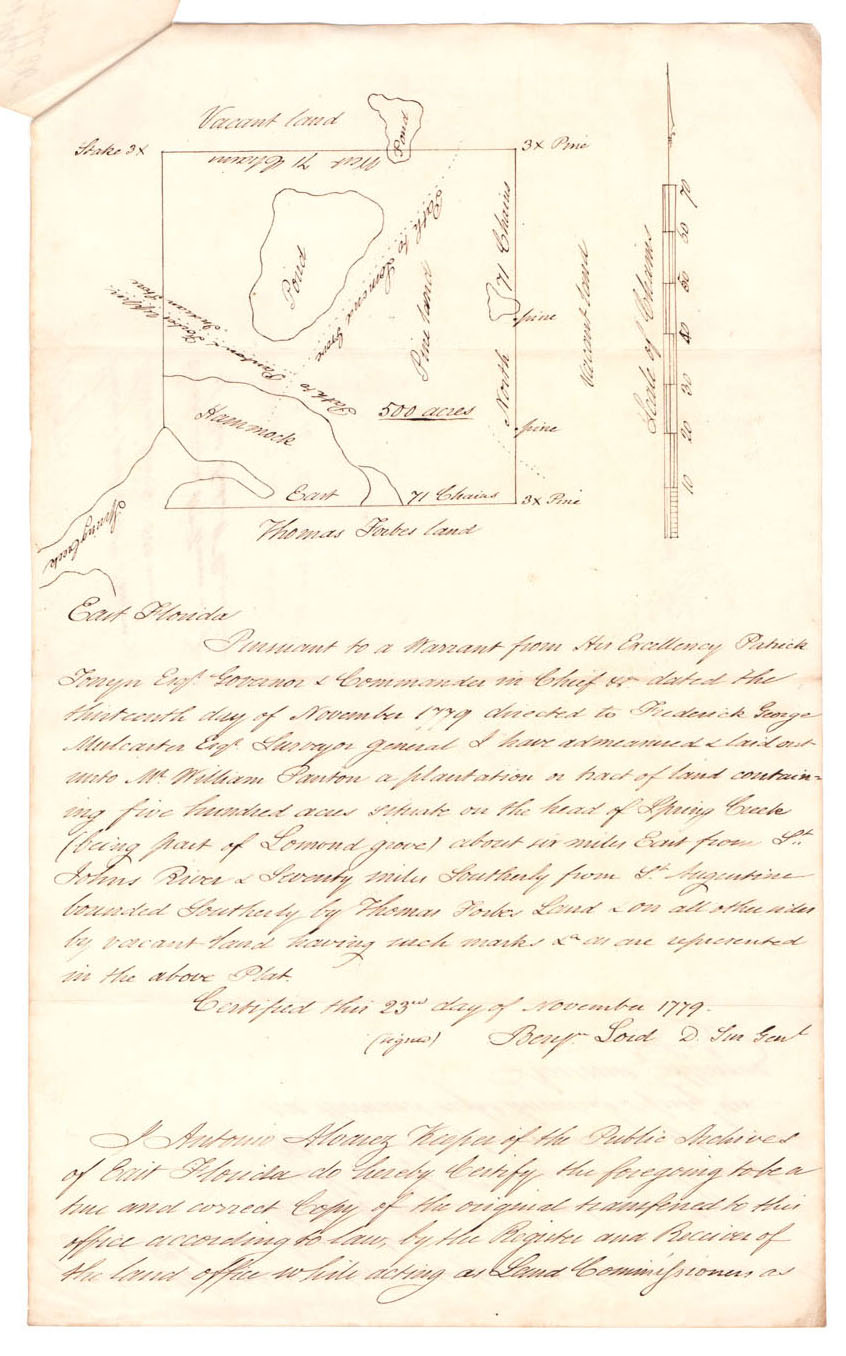 Vacant land
Pond
Stake 3x
3x Pine
West 71 Chains
Path to Lomond Grove
71 Chains
North
Pond
Pine land
Vacant land
pine
Path to Panton & Forbes upper Indian Store
500 acres
pine
Hammock
East 71 Chains
3x Pine
Thomas Forbes land
Spring Creek
Scale of Chains
70
60
50
40
30
20
10
East Florida
Pursuant to a Warrant from His Excellency Patrick
Tonyn Esqr. Governor & Commander in Chief &c dated the
thirteenth day of November 1779 directed to Frederick George
Mulcaster Esqr. Surveyor general I have admeasured & laid out
unto Mr. William Panton a plantation or tract of land contain=
ing five hundred acres situate on the head of Spring Creek
(being part of Lomond grove) about six miles East from St.
Johns River & Seventy miles Southerly from St. Augustine
bounded Southerly by Thomas Forbes Land & on all other sides
by vacant land having such marks &a as are represented
in the above Plat.
Certified this 23rd day of November 1779.
(signed) Benjn. Lord D. Sur Genl
I Antonio Alvarez Keeper of the Public Archives
of East Florida do hereby Certify the foregoing to be a
true and correct Copy of the original transferred to this
office according to law, by the Register and Receiver of
the land office while acting as Land Commissioners as